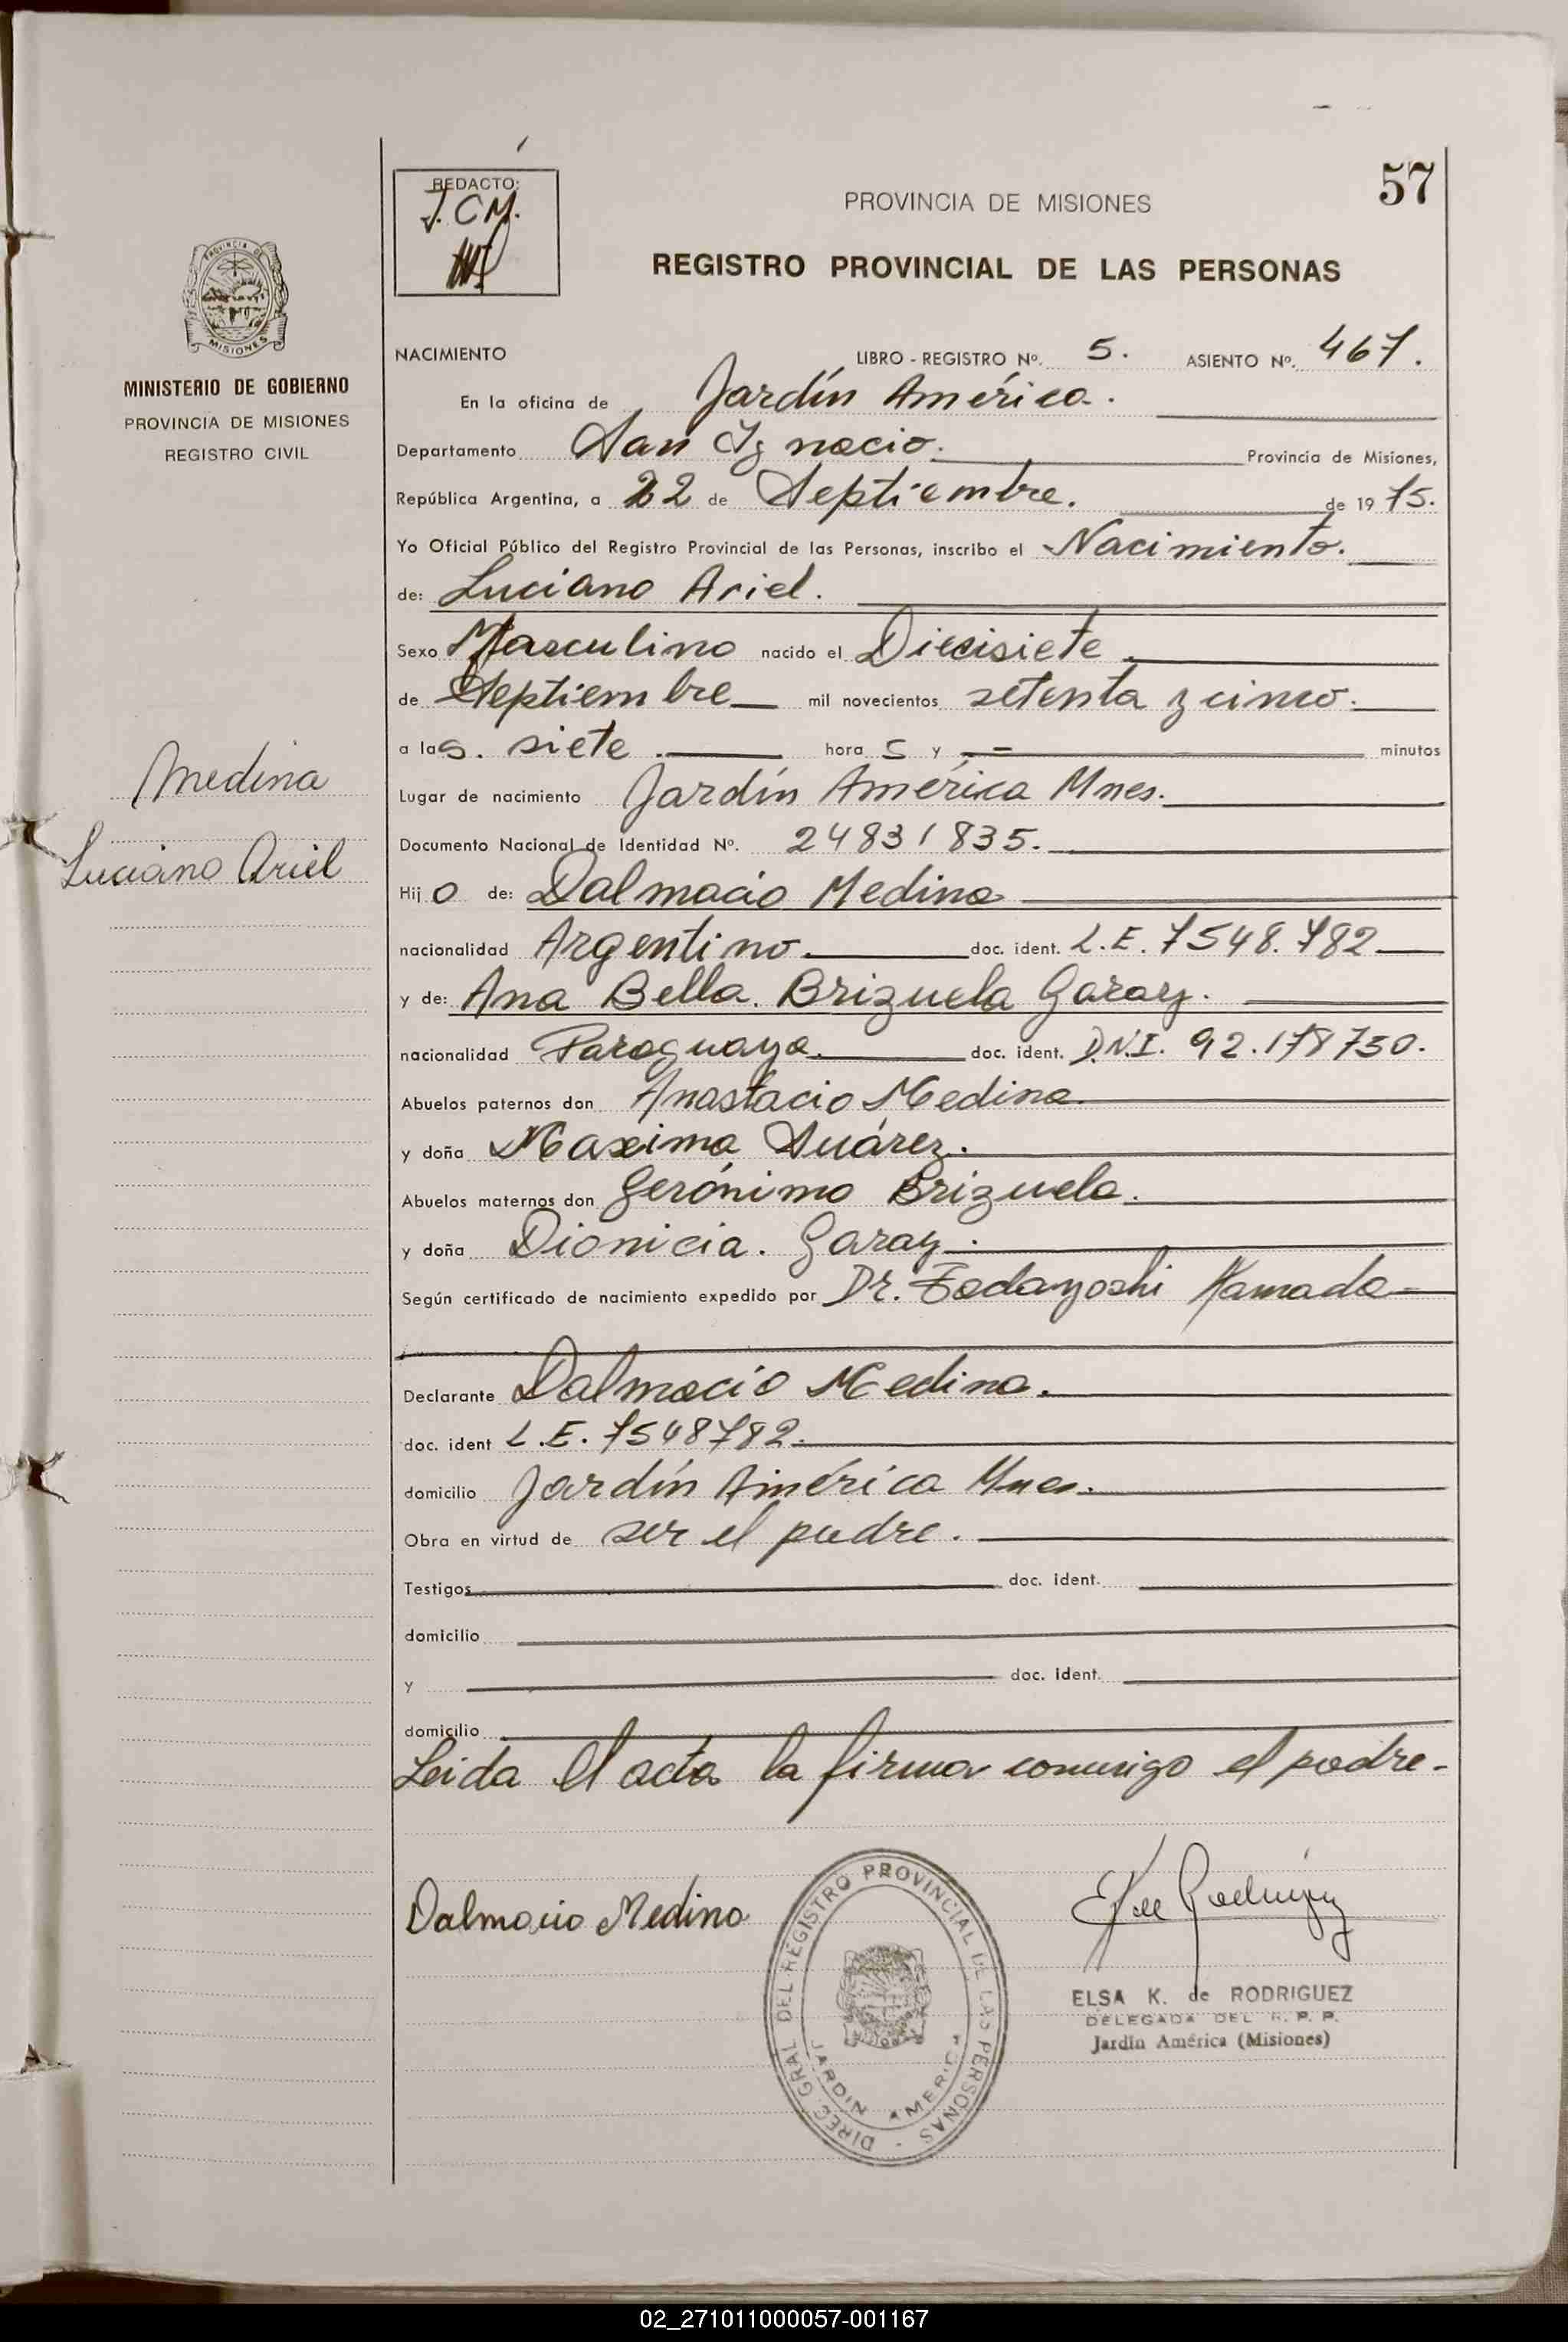 57
REDACTO:
J.C.M.
PROVINCIA DE MISIONES
REGISTRO PROVINCIAL DE LAS PERSONAS
PROVINCIA DE
MISIONES
MINISTERIO DE GOBIERNO
PROVINCIA DE MISIONES
REGISTRO CIVIL
Medina
Luciano Ariel
NACIMIENTO LIBRO - REGISTRO Nº. 5. ASIENTO Nº. 467.
En la oficina de Jardín América.
Departamento San Ignacio. Provincia de Misiones,
República Argentina, a 22 de Septiembre. de 1975.
Yo Oficial Público del Registro Provincial de las Personas, inscribo el Nacimiento.
de: Luciano Ariel.
Sexo Masculino nacido el Diecisiete
de Septiembre mil novecientos setenta y cinco.
a las. siete. hora s y - minutos
Lugar de nacimiento Jardín América Mnes.
Documento Nacional de Identidad Nº. 24831835.
Hijo de: Dalmacio Medina
nacionalidad Argentino. doc. ident. L.E. 7548.782
y de: Ana Bella. Brizuela Garay.
nacionalidad Paraguaya. doc. ident. D.N.I. 92.178750.
Abuelos paternos don Anastacio Medina
y doña Maxima Suárez.
Abuelos maternos don Gerónimo Brizuela.
y doña Dionicia. Garay.
Según certificado de nacimiento expedido por Dr. Tadayoshi Kamada-
Declarante Dalmacio Medina.
doc. ident L.E. 7548782.
domicilio Jardín América Mnes.
Obra en virtud de ser el padre.
Testigos doc. ident.
domicilio
y doc. ident.
domicilio
Leida el acta la firma conmigo el padre-
Dalmacio Medina
DIREC. GRAL DEL REGISTRO PROVINCIAL DE LAS PERSONAS -
JARDIN AMERICA
ELSA K. de RODRIGUEZ
DELEGADA DEL R. P. P.
Jardín América (Misiones)
02_271011000057-001167